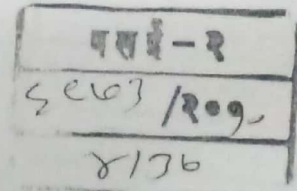 वसई - २
५८७३ /२०१०
४/३७